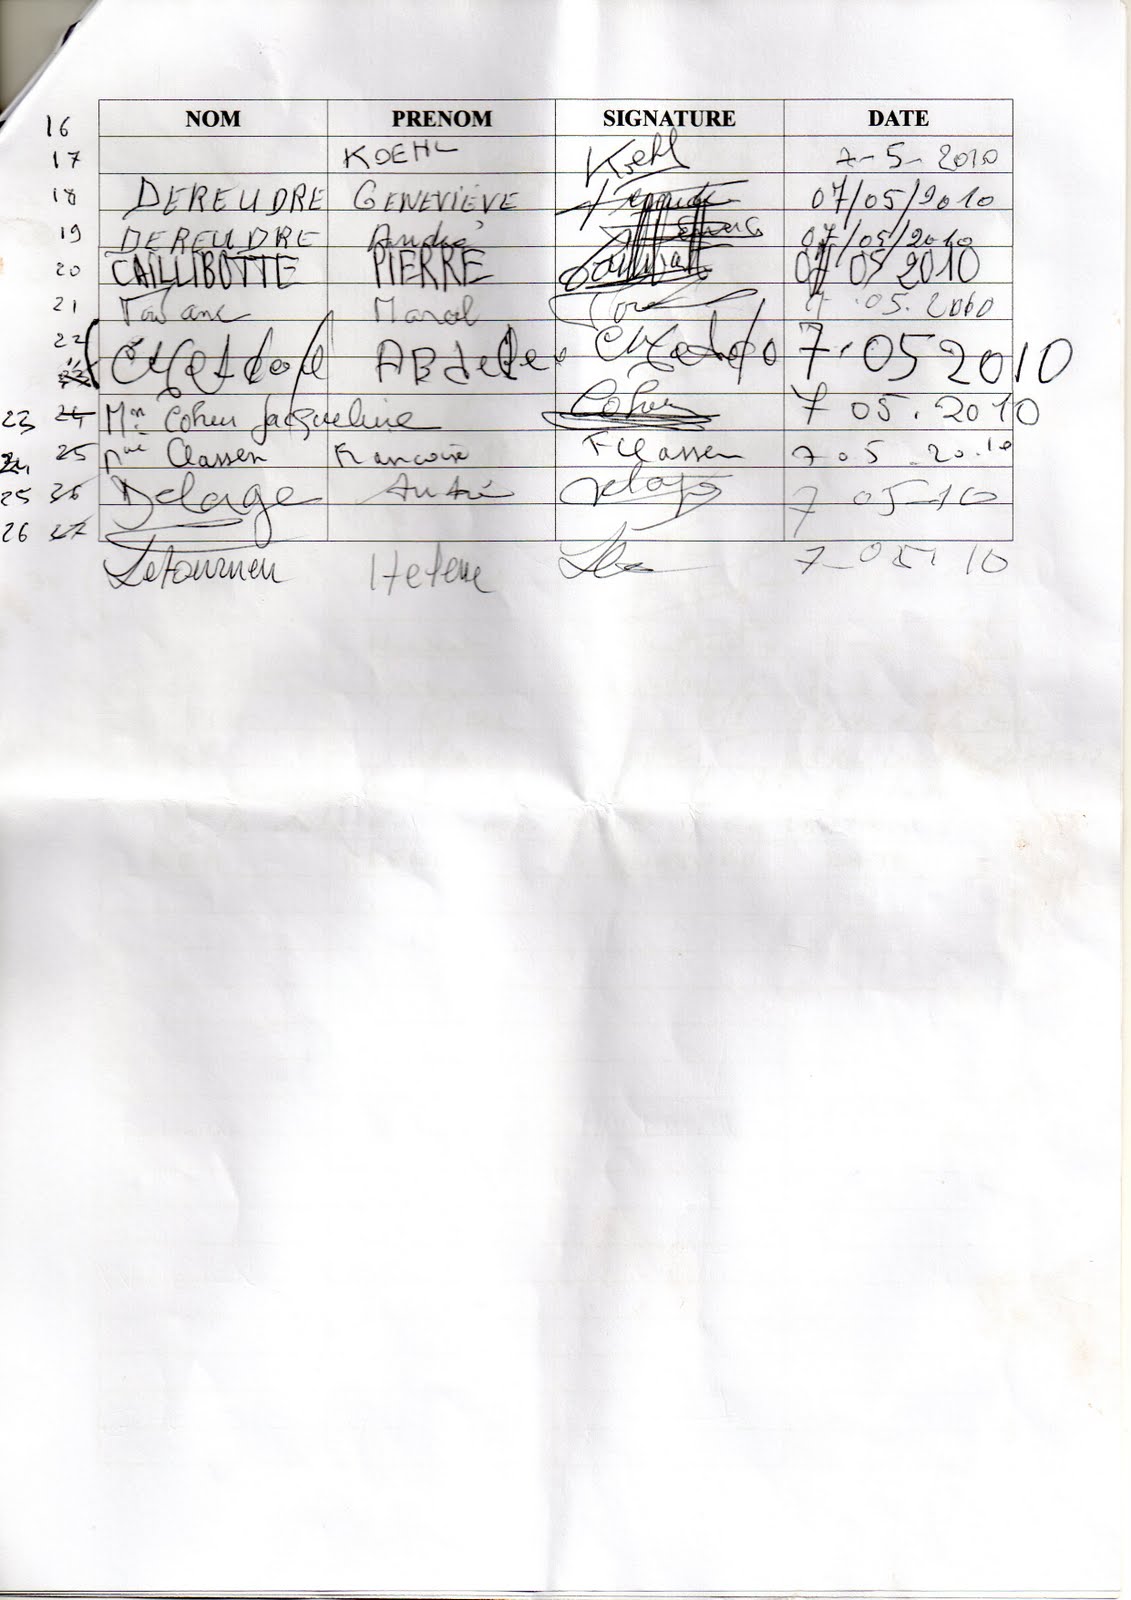 16 NOM PRENOM SIGNATURE DATE
17 KOEHL Koehl 7-5-2010
18 DEREUDRE GENEVIÈVE 07/05/2010
19 DEREUDRE André 07/05/2010
20 CAILLIBOTTE PIERRE 07 05 2010
21 Marcel 05.2010
22 7.05 2010
23 24 Mme Cohen Jacqueline Cohen 7 05.2010
24 25 Classen Francoise FClassen 7 05.20.10
25 26 Delage André 7 05-10
26 27
Letourneu Helene 7-05.10